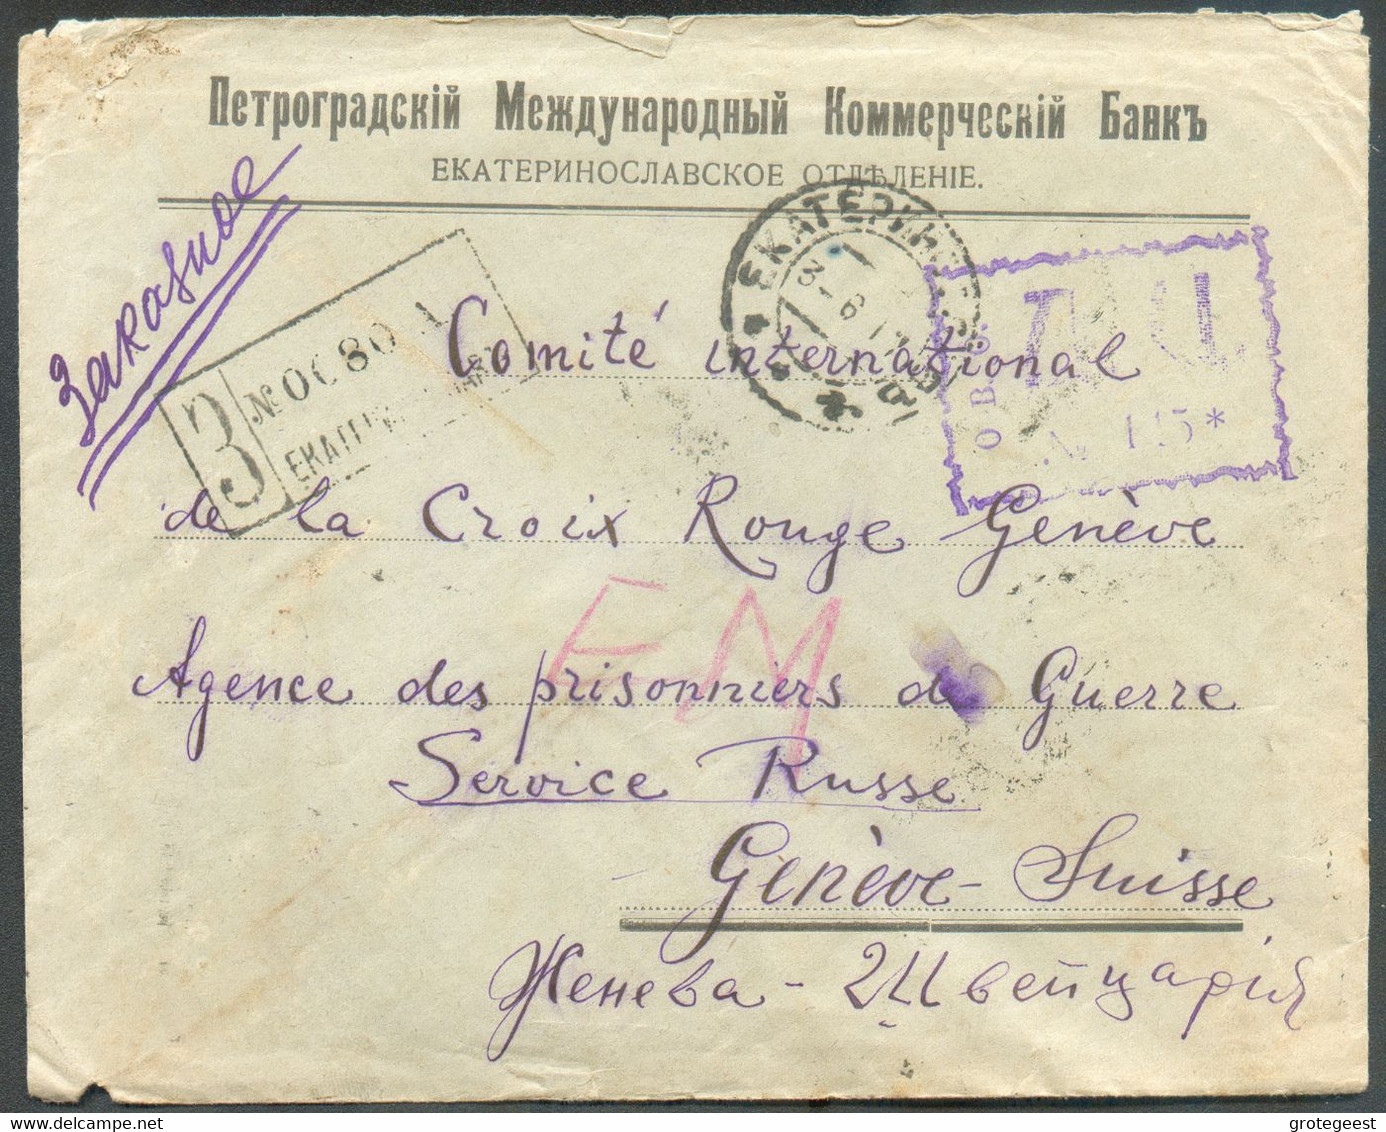 Петроградскій Международный Коммерческій Банкъ
ЕКАТЕРИНОСЛАВСКОЕ ОТДѢЛЕНІЕ.
Заказное
З
Comité international
de la Croix Rouge Genève
EM
Agence des prisonniers de Guerre
Service Russe
Genève - Suisse
Женева - Швейцарія
grotegeest